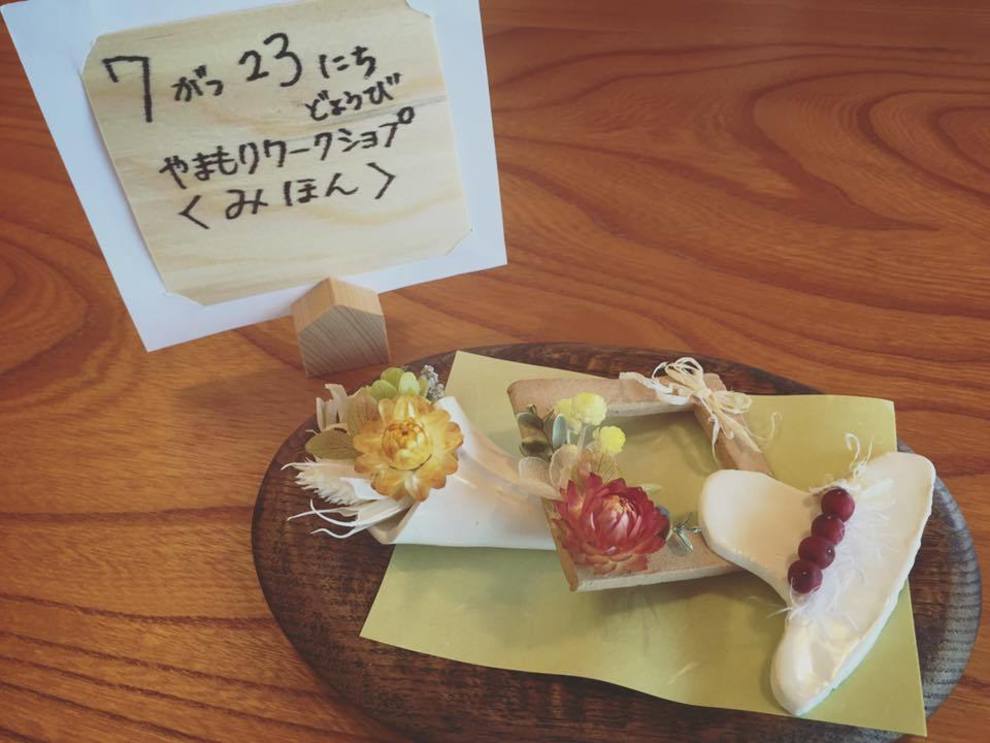 7がつ23にち
どようび
やまもりワークショプ
<みほん>